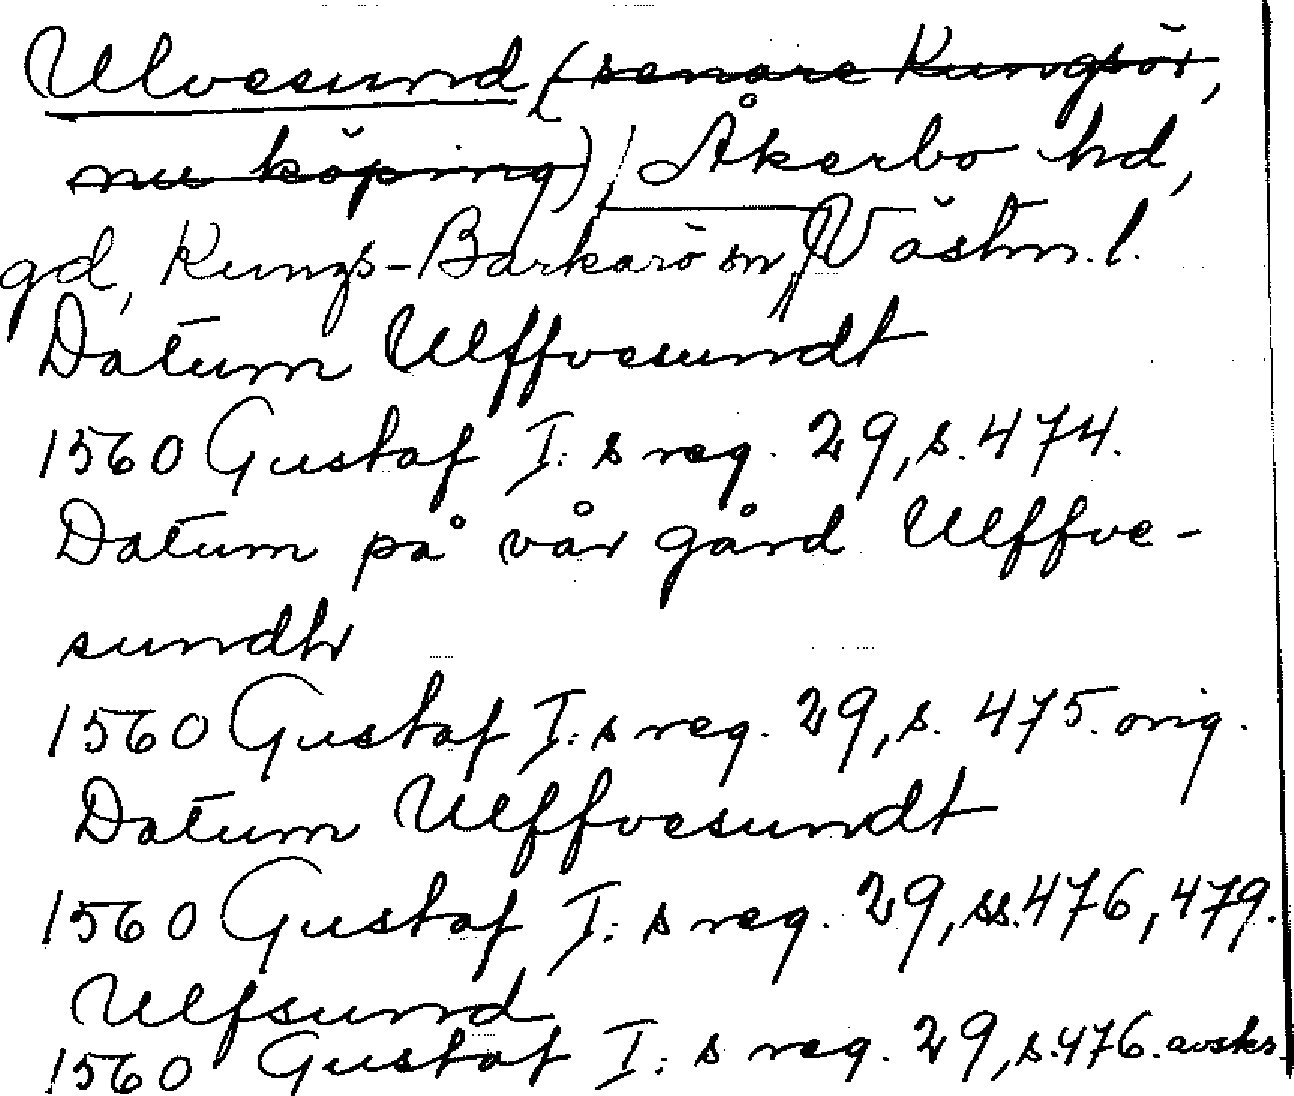 Ulvesund (senare Kungsör,
nu köping) Åkerbo hd,
gd, Kungs-Barkarö sn, Västm. l.
Datum Ulffvesundt
1560 Gustaf I:s reg. 29, s. 474.
Datum på vår gård Ulffve-
sundh
1560 Gustaf I:s reg. 29, s. 475. orig.
Datum Ulffvesundt
1560 Gustaf I:s reg. 29, ss. 476, 479.
Ulfsund
1560 Gustaf I:s reg. 29, s. 476. avskr.